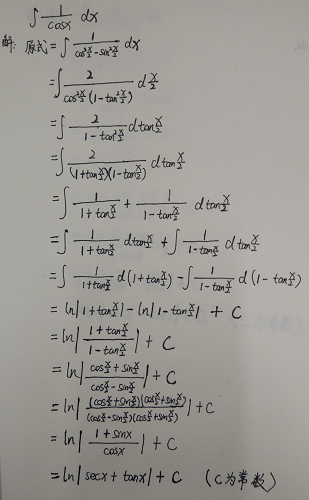 ∫ 1/cosx dx
解: 原式 = ∫ 1/(cos²x/2 − sin²x/2) dx
= ∫ 2/(cos²x/2 (1 − tan²x/2)) d x/2
= ∫ 2/(1 − tan²x/2) d tan x/2
= ∫ 2/((1+tan x/2)(1−tan x/2)) d tan x/2
= ∫ 1/(1+tan x/2) + 1/(1−tan x/2) d tan x/2
= ∫ 1/(1+tan x/2) d tan x/2 + ∫ 1/(1−tan x/2) d tan x/2
= ∫ 1/(1+tan x/2) d(1+tan x/2) − ∫ 1/(1−tan x/2) d(1−tan x/2)
= ln|1+tan x/2| − ln|1−tan x/2| + C
= ln|(1+tan x/2)/(1−tan x/2)| + C
= ln|(cos x/2 + sin x/2)/(cos x/2 − sin x/2)| + C
= ln|(cos x/2 + sin x/2)(cos x/2 + sin x/2)/(cos x/2 − sin x/2)(cos x/2 + sin x/2)| + C
= ln|(1+sinx)/cosx| + C
= ln|secx + tanx| + C (C为常数)